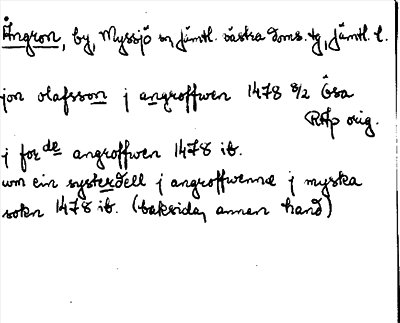 Ångron, by, Myssjö sn, Jämtl. västra doms. tg, Jämtl. l.
jon olafsson j angroffwen 1478 8/2 Ösa
RAp orig.
j for de angroffwen 1478 ib.
um ein systerdell j angroffwenne j myska
sokn 1478 ib. (baksida, annan hand)